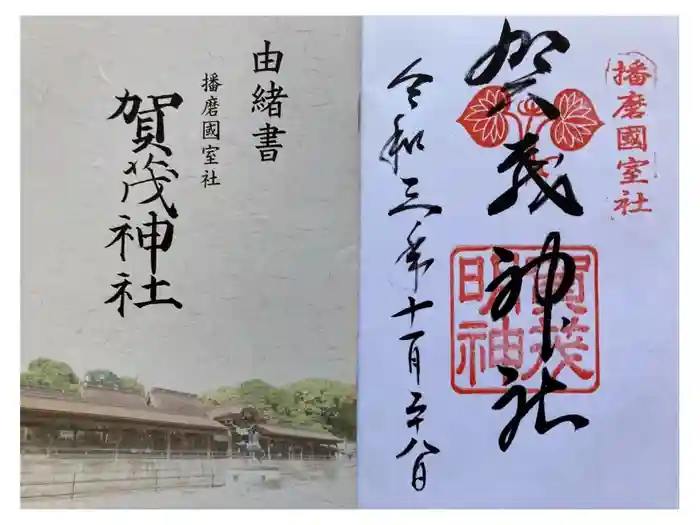 由緒書
播磨國室社
賀茂神社
播磨國室社
賀茂神社
賀茂
明神
令和三年十一月二十八日